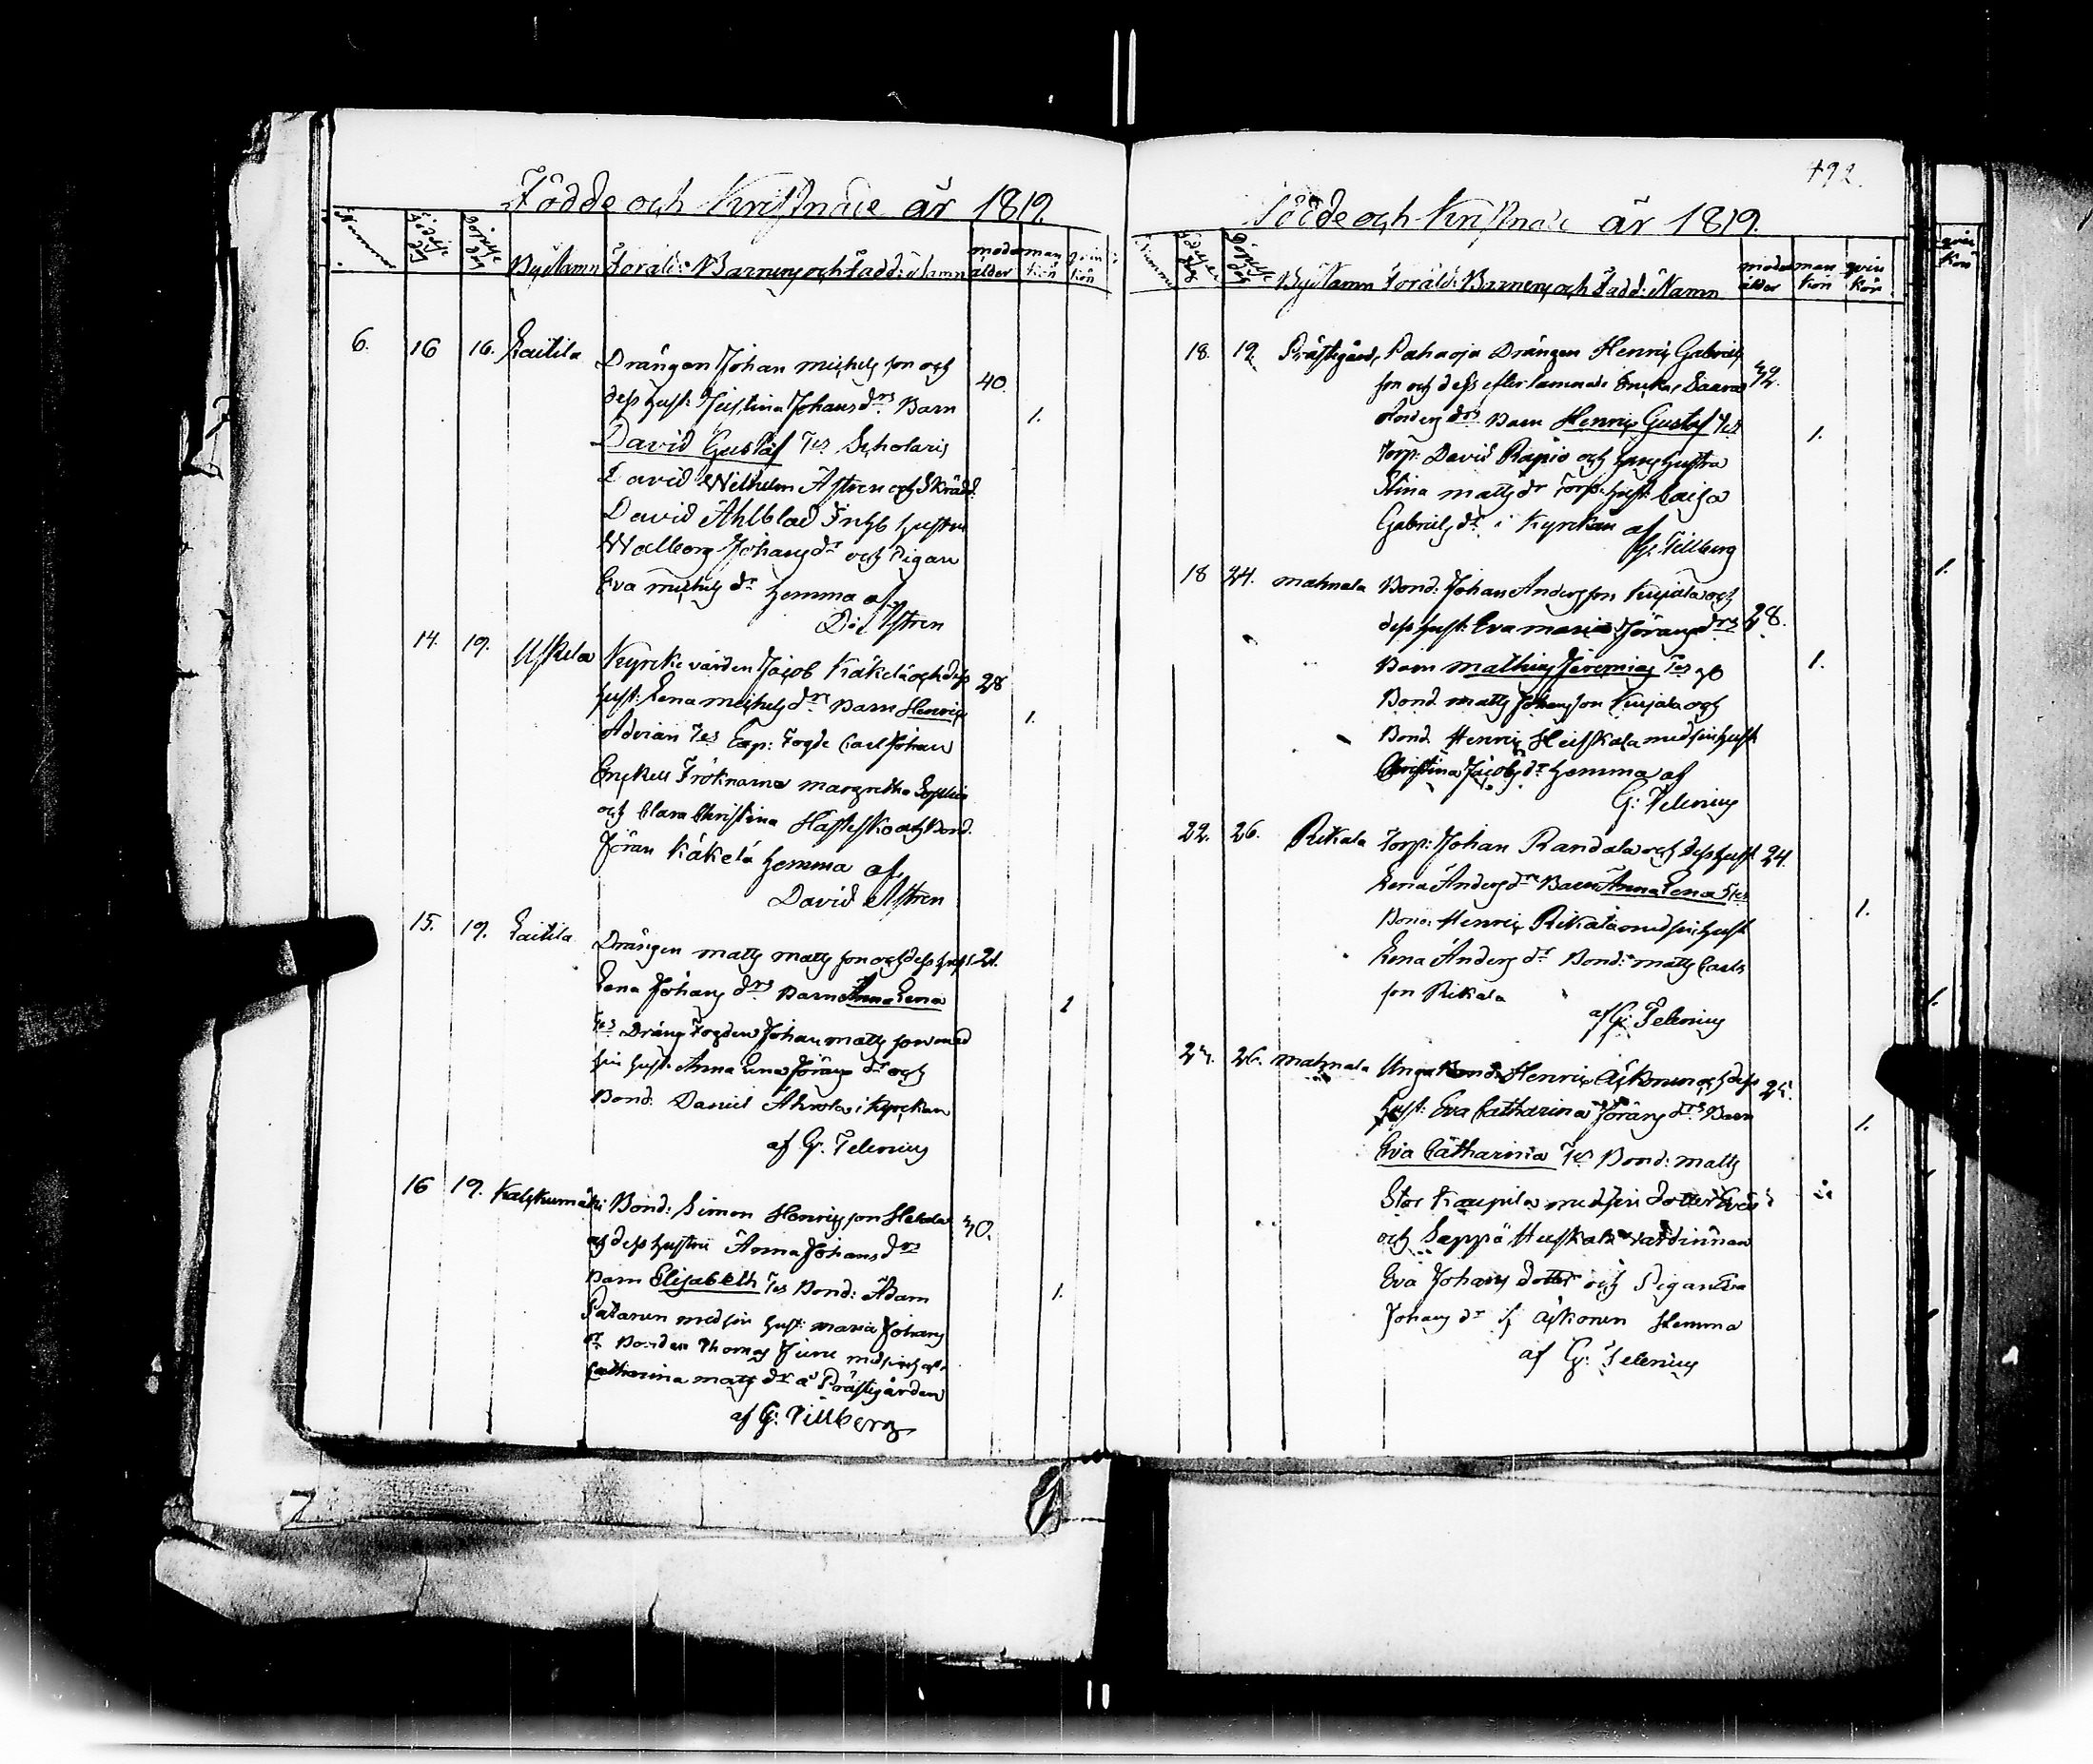 Födde och Kristnade år 1819.
Nummer Födelse dag Döpelse dag ByeNamn Föräld: Barnens och Fadd: Namn moder ålder man kön qvin kön
6. 16 16. Laitila Drängen Johan michels son och
dess hust: Justina Johansdrs Barn 40.
David Gustaf Tes Scholaris 1.
David Wilhelm Astren och Skrädd.
David Ahlblad Inhb hustru
Walborg Johans dr och Pigan
Eva michels dr hemma af
D: Astren
14. 19. Uskela Kyrckevärden Jacob Käkelä och dess 28
hust: Lena michels drs Barn Henric
Adrian Tes Exp: Fogde Carl Johan 1.
Enckell Fröknarna margretha Sophia
och Clara Christina Hästesko och Bond.
Jöran Käkelä hemma af
David Astren
15. 19. Laitila Drängen matts matts son och dess hust 21.
Lena Johans drs Barn Anna Lena 1
Tes Dräng Fogden Johan matts son med
sin hust: Anna Lena Jörans dr och
Bond: Daniel Ahvola i Kyrckan
af G. Telenius
16 19. Kalskumäki Bond: Simon Henrics son
och dess hustru Anna Johans drs 30.
Barn Elisabeth Tes Bond: Adam 1.
med sin hust: maria Johans
dr Bonden Thomas med sin hust.
Catharina matts dr å Prästegården
af G: Tillberg
492.
Födde och Kristnade år 1819.
Nummer Födelse dag Döpelse dag ByeNamn Föräld: Barnens och Fadd: Namn moder ålder man kön qvin kön
18. 19. Prästegård, Pahaoja Drängen Henric Gabriels
son och dess efterlämnade Encka, Saara 32.
drs Barn Henric Gustaf Tes 1.
Torp: David Rapio och hans hustra
Stina matts dr Torp: hust: Caisa
Gabriels dr i Kyrckan af
G: Tillberg
18 24. mahnala Bond: Johan Anders son Kujala och
dess hust: Eva maria Jörans drs 28.
Barn mathias Jeremias Tes 1.
Bond matts Johans son Kujala och
Bond Henric Heiskala med sin hust
Christina Jacobs dr hemma af
G: Telenius
22. 26. Rekala Torp: Johan Randala och dess hust 24.
Lena Anders drs Barn Anna Lena Tes
Bond: Henric Rekala med sin hust 1.
Lena Anders dr Bond: matts Carls
son Rekala
af G: Telenius
26. mahnala Unga Bond: Henric och dess 25.
hust: Eva Catharina Jörans drs Barn 1.
Eva Catharina Tes Bond: matts
Stor Kaupila med sin dotter Eva
och Seppä Heiskala värdinnan
Eva Johans dotter och Pigan Eva
Johans dr Hemma
af G: Telenius